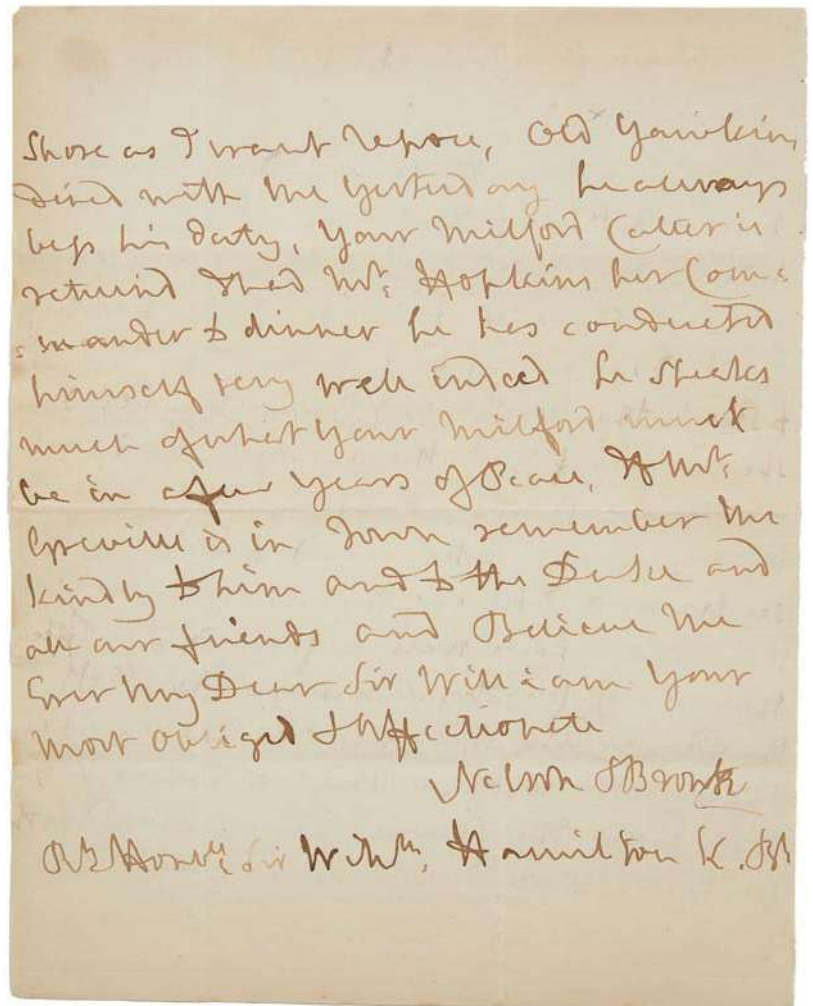 Shore as I want repose, Old Yawkins
dined with me yesterday he always
begs his duty, Your Milford Cutter is
returnd I had Mr. Hopkins her Com=
=mander to dinner he has conducted
himself very well indeed he speaks
much of what your Milford must
be in a few years of Peace, If Mr.
Greville is in Town remember me
kindly to him and to the Duke and
all our friends and Believe me
Ever My Dear Sir William Your
most obliged & Affectionate
Nelson & Bronte
Rt. Honble. Sir Willm. Hamilton K. B.